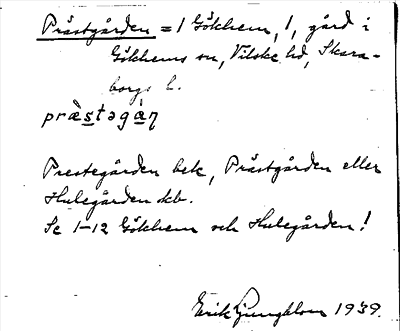 Prästgården = 1 Gökhem, 1, gård i
Gökhems sn, Vilske hd, Skara-
borgs l.
præ̀stəgàn
Prestegården bek, Prästgården eller
Hulegården skb.
Se 1-12 Gökhem och Hulegården!
Erik Ljungblom 1939.